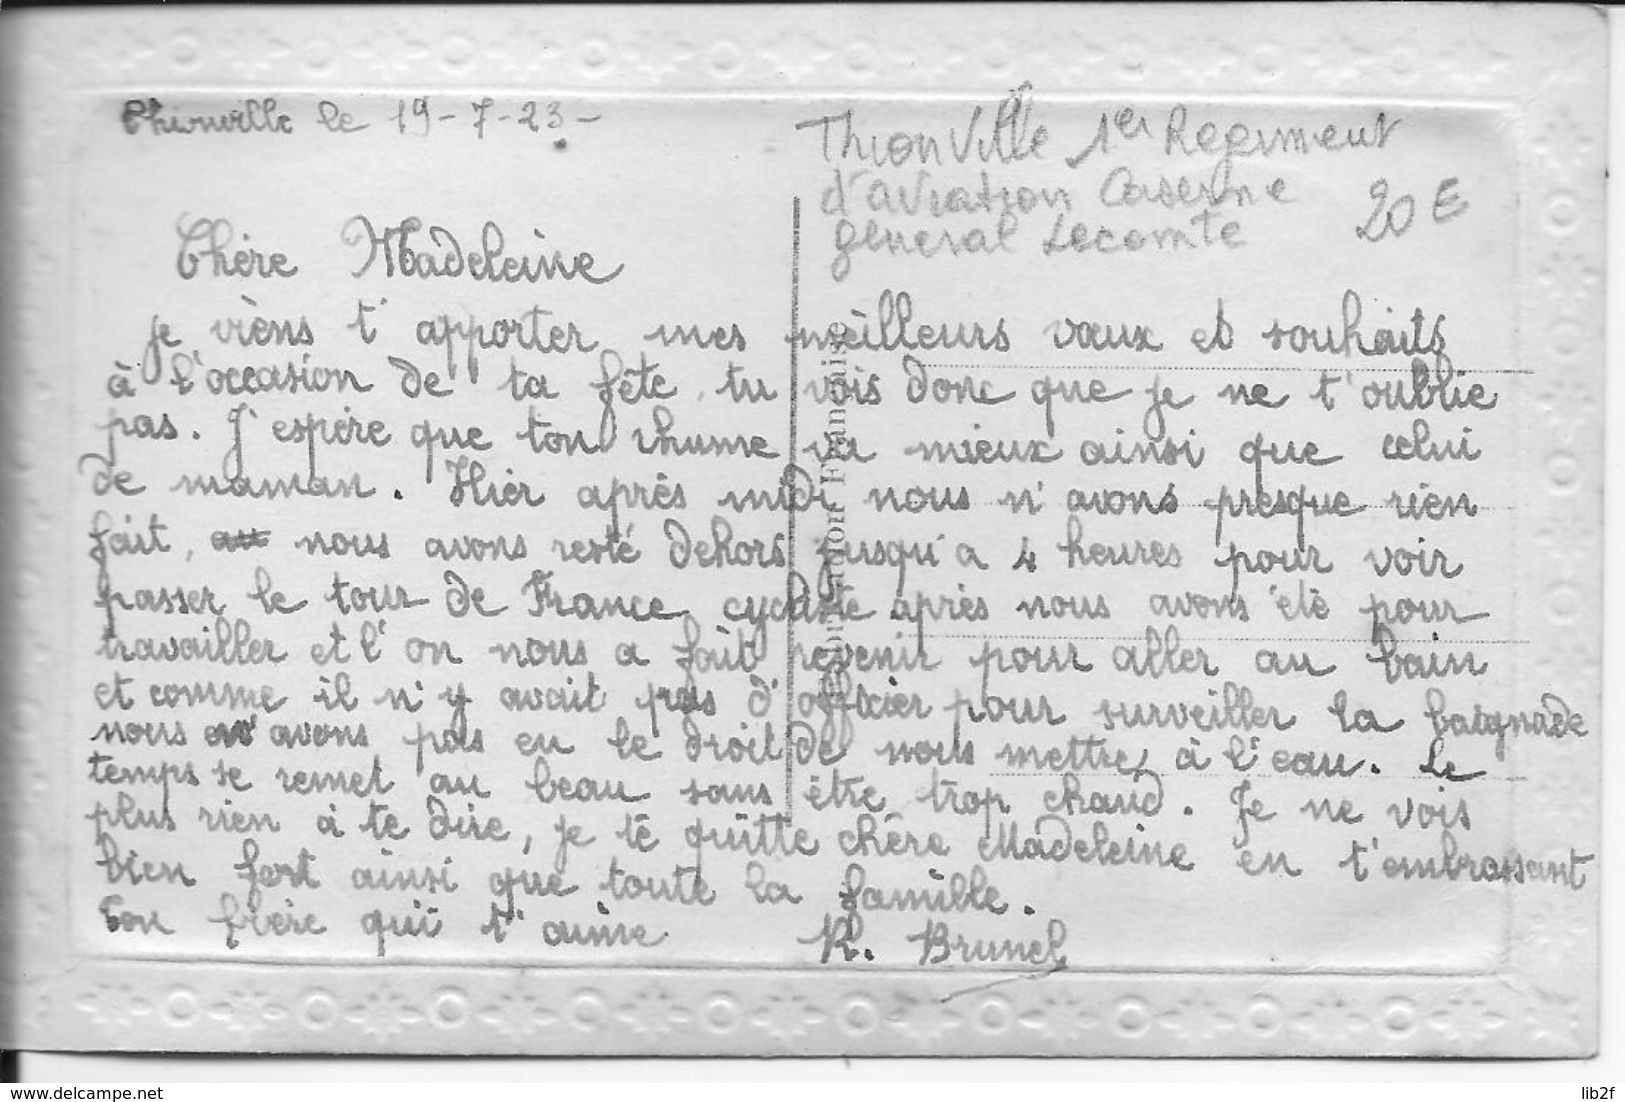 Thionville le 19-7-23-
Thionville 1er Regiment
d'aviation Caserne
général Lecomte
20 €
Chère Madeleine
je viens t'apporter mes meilleurs vœux et souhaits
à l'occasion de ta fête, tu vois donc que je ne t'oublie
pas. J'espère que ton rhume va mieux ainsi que celui
de maman. Hier après midi nous n'avons presque rien
fait, nous avons resté dehors jusqu'a 4 heures pour voir
passer le tour de France cycliste après nous avons été pour
travailler et l'on nous a fait revenir pour aller au bain
et comme il n'y avait pas d'officier pour surveiller la baignade
nous avons pas eu le droit de nous mettre à l'eau. Le
temps se remet au beau sans être trop chaud. Je ne vois
plus rien à te dire, je te quitte chère Madeleine en t'embrassant
bien fort ainsi que toute la famille.
Ton frère qui t'aime R. Brunel
www.delcampe.net
lib2f